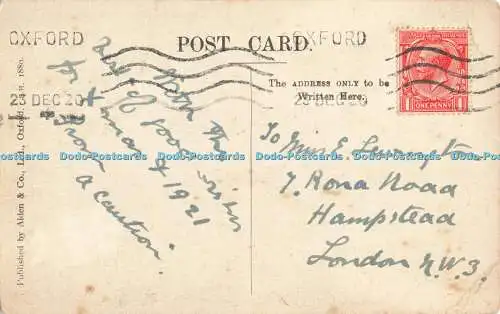 OXFORD
23 DEC 20
POST CARD.
OXFORD
23 DEC 20
ONE PENNY
The ADDRESS ONLY to be
Written Here.
With the
best of good wishes
for Xmas & 1921
From
a caution.
To Mrs E.
7. Rona Road
Hampstead
London N.W.3.
Published by Alden & Co., Ltd., Oxford.
Dodo-Postcards Dodo-Postcards Dodo-Postcards Dodo-Postcards Dodo-Postcards Dodo-Postcards